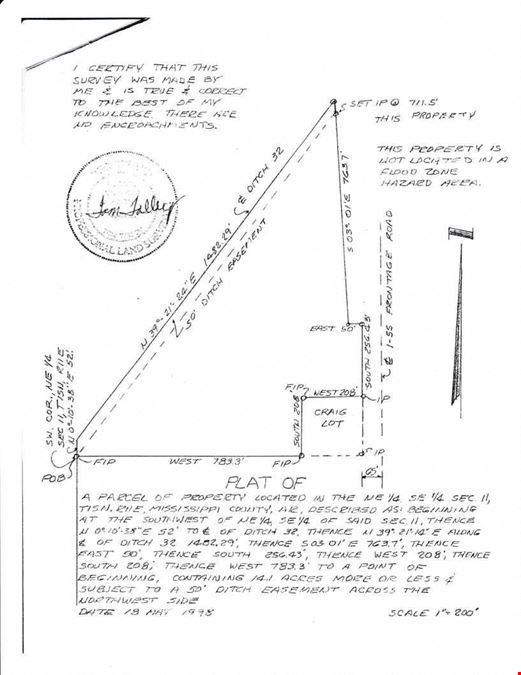 I CERTIFY THAT THIS
SURVEY WAS MADE BY
ME & IS TRUE & CORRECT
TO THE BEST OF MY
KNOWLEDGE. THERE ARE
NO ENCROACHMENTS.
Tom Talley
PROFESSIONAL LAND SURVEYOR
SET IP @ 711.5'
THIS PROPERTY
THIS PROPERTY IS
NOT LOCATED IN A
FLOOD ZONE
HAZARD AREA.
℄ DITCH 32
N 39°-21'-24"E 1482.29'
50' DITCH EASEMENT
S 03°01'E 763.7'
℄ I-55 FRONTAGE ROAD
EAST 50'
SOUTH 256.43'
SW. COR., NE 1/4
SEC 11, T15N, R11E
N 0°-10'-38"E 52'
FIP
WEST 208'
IP
SOUTH 208'
CRAIG
LOT
POB
FIP
WEST 783.3'
FIP
IP
65'
PLAT OF
A PARCEL OF PROPERTY LOCATED IN THE NE 1/4 SE 1/4 SEC 11,
T15N, R11E, MISSISSIPPI COUNTY, AR, DESCRIBED AS: BEGINNING
AT THE SOUTHWEST OF NE 1/4, SE 1/4 OF SAID SEC. 11, THENCE
N 0°-10'-38"E 52' TO ℄ OF DITCH 32, THENCE N 39°-21'-14"E ALONG
℄ OF DITCH 32 1482.29', THENCE S 03°-01'E 763.7', THENCE
EAST 50', THENCE SOUTH 256.43', THENCE WEST 208', THENCE
SOUTH 208', THENCE WEST 783.3' TO A POINT OF
BEGINNING, CONTAINING 14.1 ACRES MORE OR LESS &
SUBJECT TO A 50' DITCH EASEMENT ACROSS THE
NORTHWEST SIDE
DATE 18 MAY 1998 SCALE 1"=200'